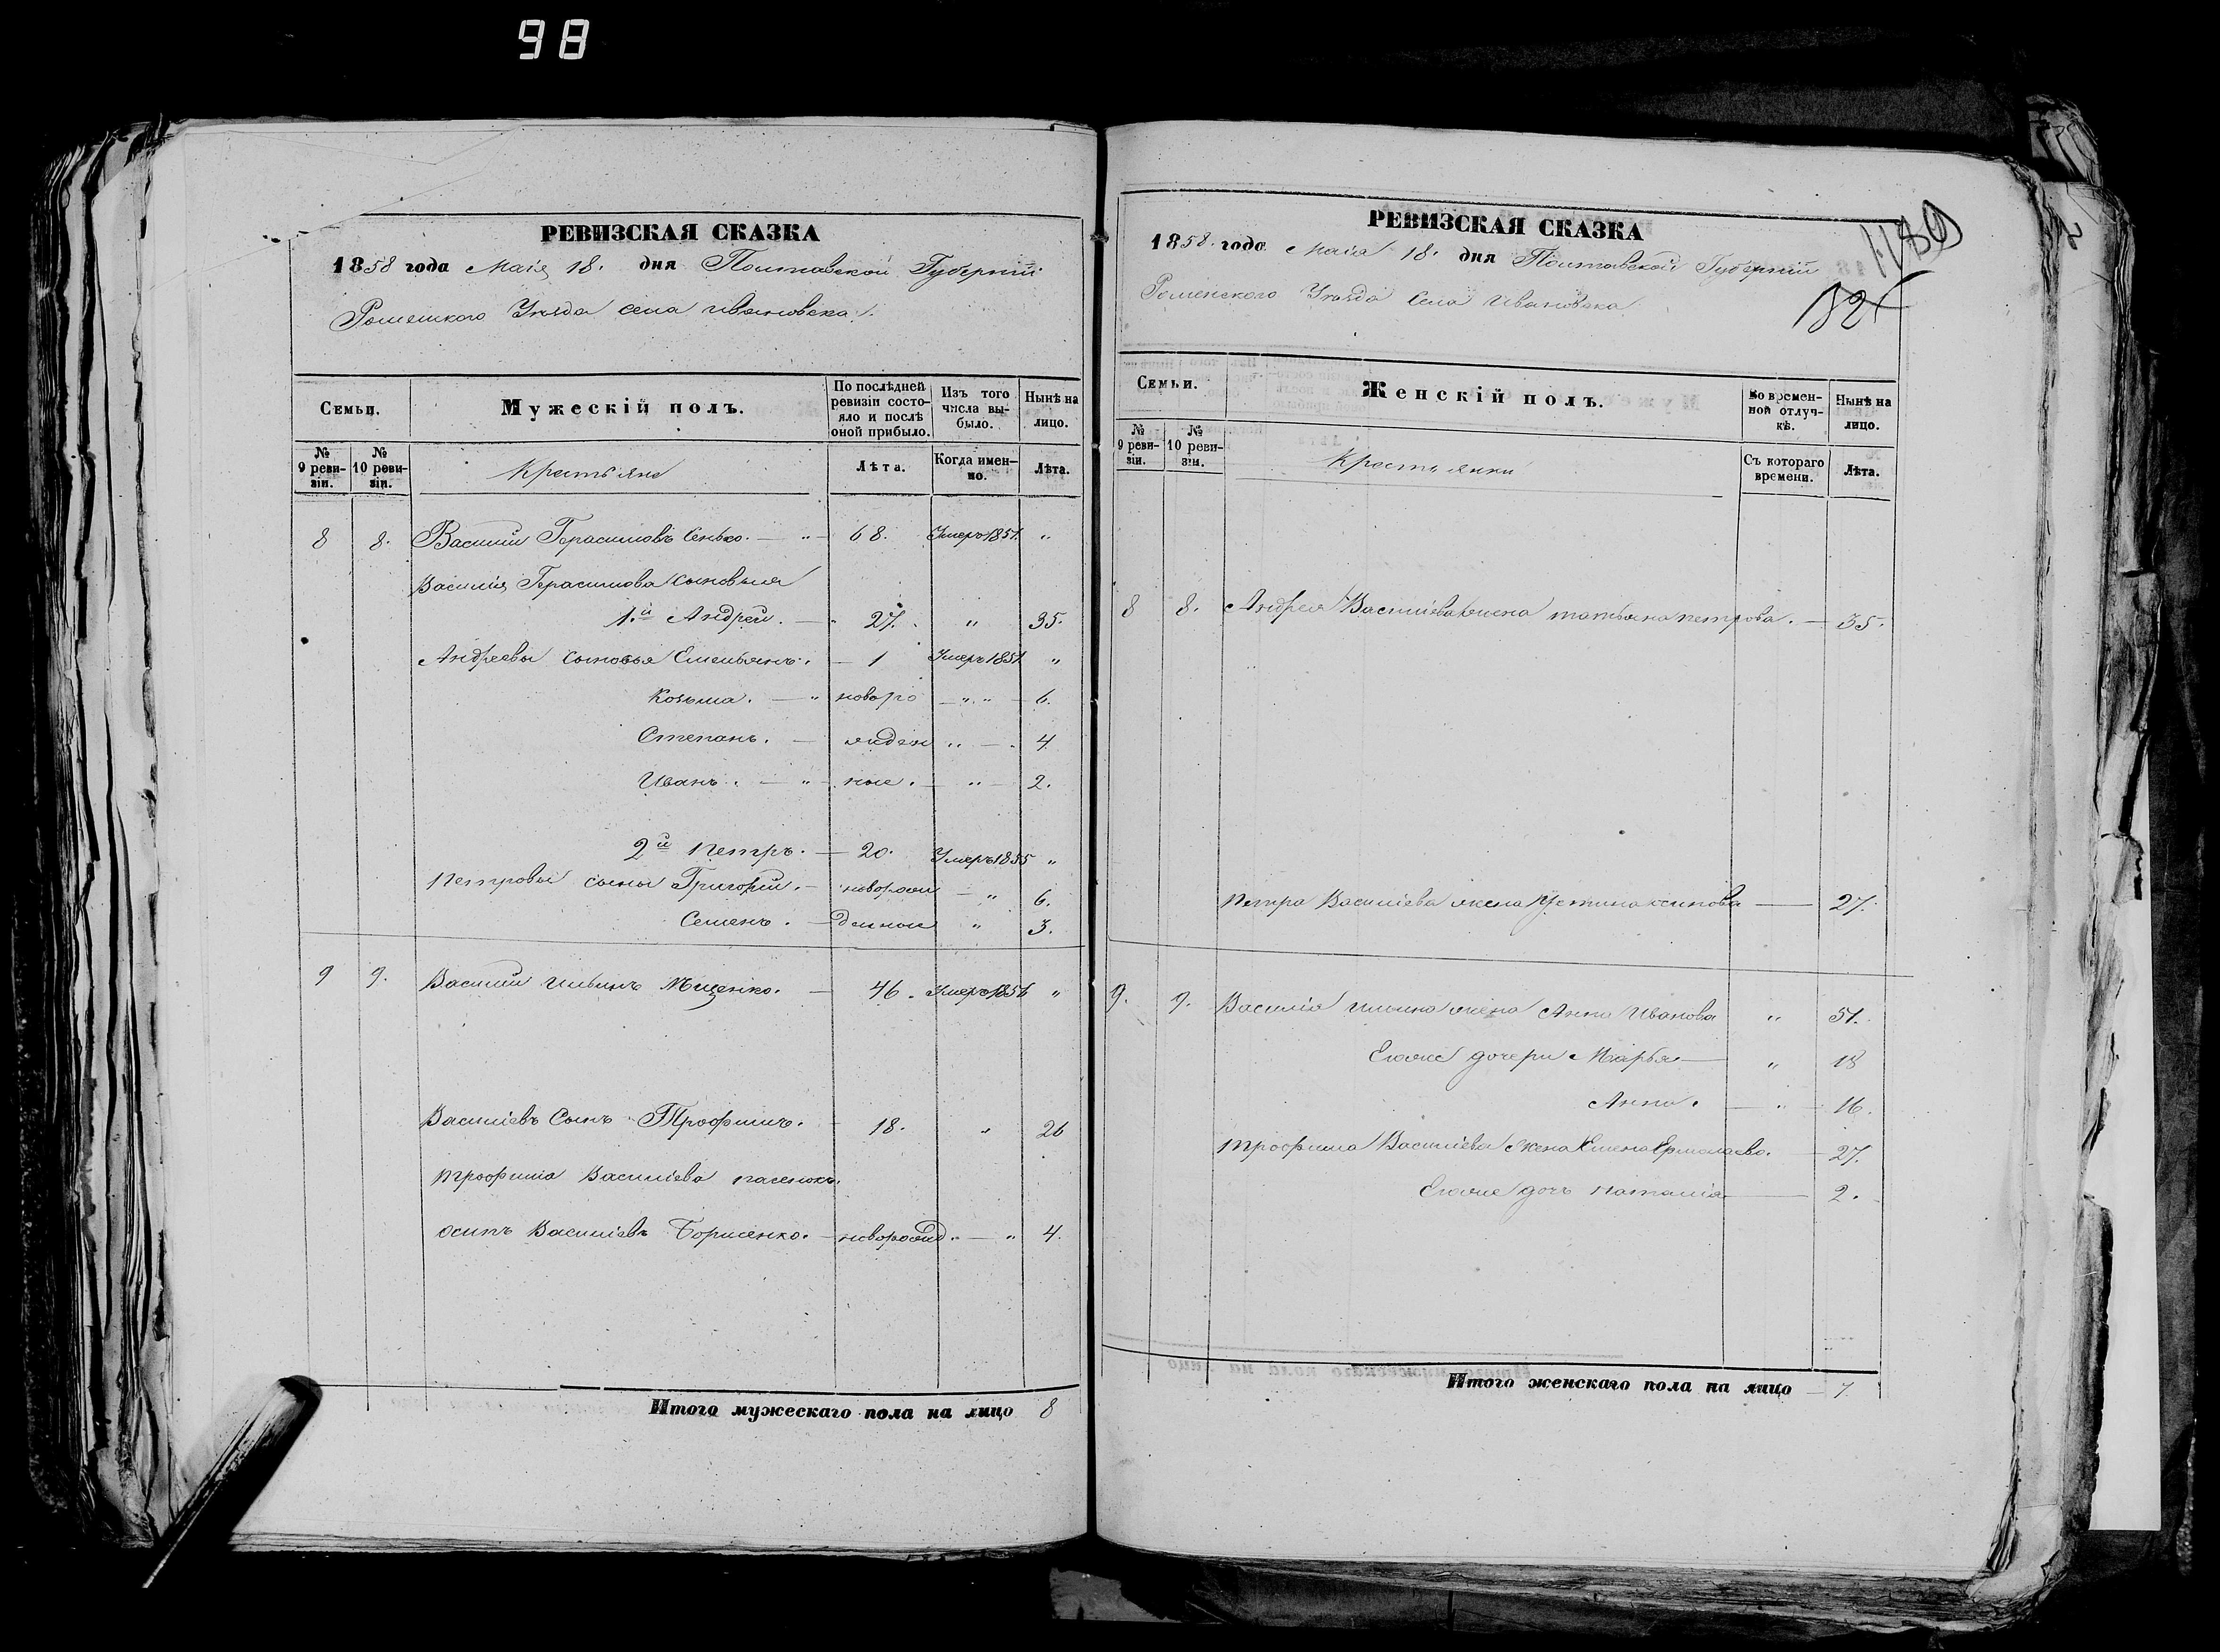 98
РЕВИЗСКАЯ СКАЗКА
1858 года Маія 18. дня Полтавской Губерніи
Роменского Уѣзда села Ивановска.
Семьи.
Мужескій полъ.
По послѣдней ревизіи состояло и послѣ оной прибыло.
Изъ того числа выбыло.
Нынѣ на лицо.
№ 9 ревизіи.
№ 10 ревизіи.
Крестьяне
Лѣта.
Когда именно.
Лѣта.
8 8. Василий Герасимовъ Сенько. — " — 68. Умеръ 1851. "
Василія Герасимова сыновья
1.й Андрей. — " 27. " 35.
Андреевы сыновья Емельянъ. — 1 Умеръ 1851. "
Козьма. — " новоро — " " — 6.
Степанъ. — жден " — 4
Иванъ. — " — ные. — " — 2.
2й Петръ. — 20. Умеръ 1855 "
Петровы сыны Григорий. — новорож — " 6.
Семенъ. — денные " 3.
9 9. Василий Ильинъ Мищенко. — 46. Умеръ 1856 "
Василіевъ Сынъ Трофимъ. 18. " 26
Трофима Василіева пасенокъ.
Осипъ Василіевъ Борисенко. — новорожд. — " 4.
Итого мужескаго пола на лицо 8
РЕВИЗСКАЯ СКАЗКА
1858. года Маія 18. дня Полтавской Губерніи
Роменского Уѣзда Села Ивановска
1180
Семьи.
Женскій полъ.
Во временной отлучкѣ.
Нынѣ на лицо.
№ 9 ревизіи.
№ 10 ревизіи.
Крестьянки
Съ котораго времени.
Лѣта.
8 8. Андрея Василіева жена Татьяна Петрова. — 35.
Петра Василіева жена Устина — 27.
9. 9. Василія Ильина жена Анна Иванова " 51.
Егоже дочери Марья — " 18
Анна. — " — 16.
Трофима Василіева жена Елена Ермолаева. — 27.
Егоже дочь Наталія — 2.
Итого женскаго пола на лицо — 7.